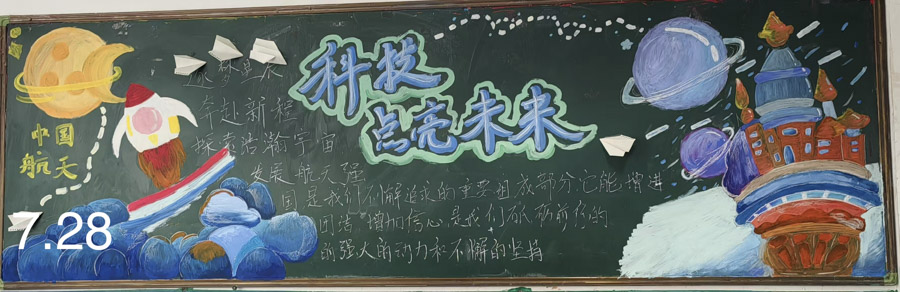 科技
点亮未来
中国
航天
逐梦星辰
奔赴新程
探索浩瀚宇宙
发展航天强
国是我们不懈追求的重要组成部分,它能增进
团结 增加信心 是我们砥砺前行的
的强大的动力和不懈的坚持
7.28